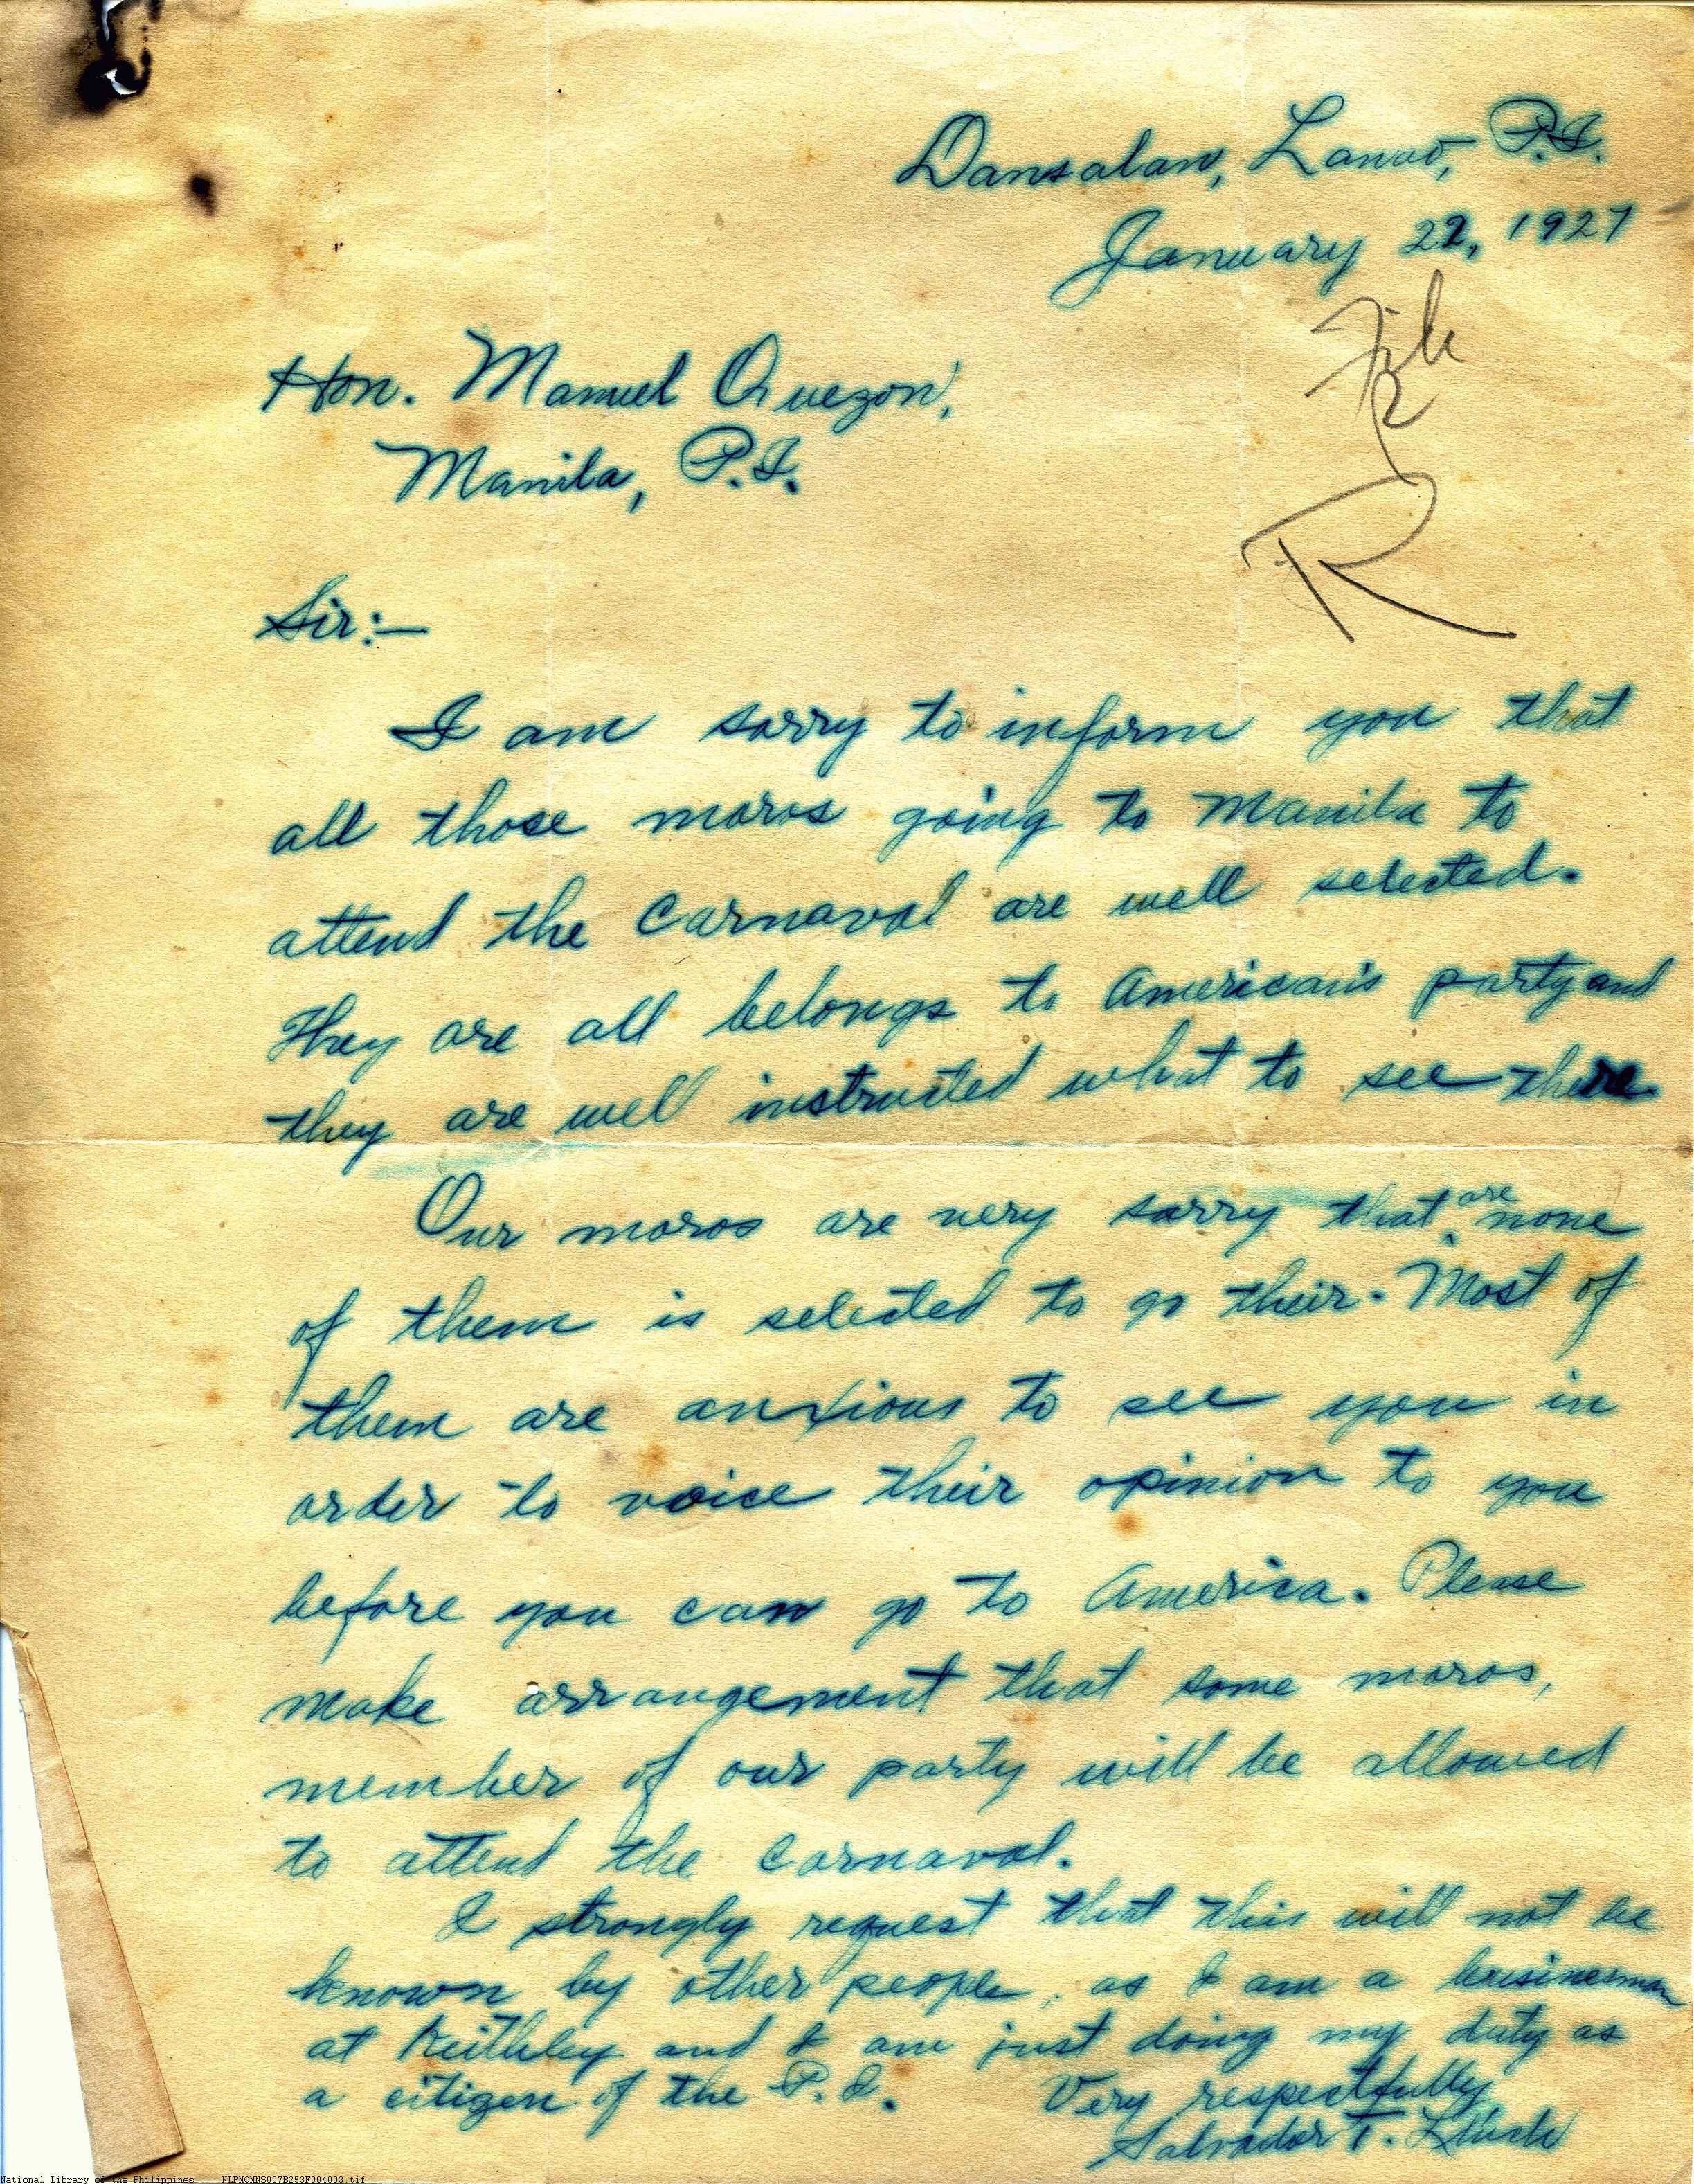 Dansalan, Lanao, P.I.
January 22, 1927
File
R
Hon. Manuel Quezon,
Manila, P.I.
Sir:—
I am sorry to inform you that
all those moros going to Manila to
attend the Carnaval are well selected.
They are all belongs to American's party and
they are well instructed what to see there
Our moros are very sorry that are none
of them is selected to go their. Most of
them are anxious to see you in
order to voice their opinion to you
before you can go to America. Please
make arrangement that some moros,
member of our party will be allowed
to attend the Carnaval.
I strongly request that this will not be
known by other people, as I am a businesman
at Keithley and I am just doing my duty as
a citizen of the P.I. Very respectfully
Salvador T. Lluch
National Library of the Philippines NLPMQMNS007B253F004003.tif